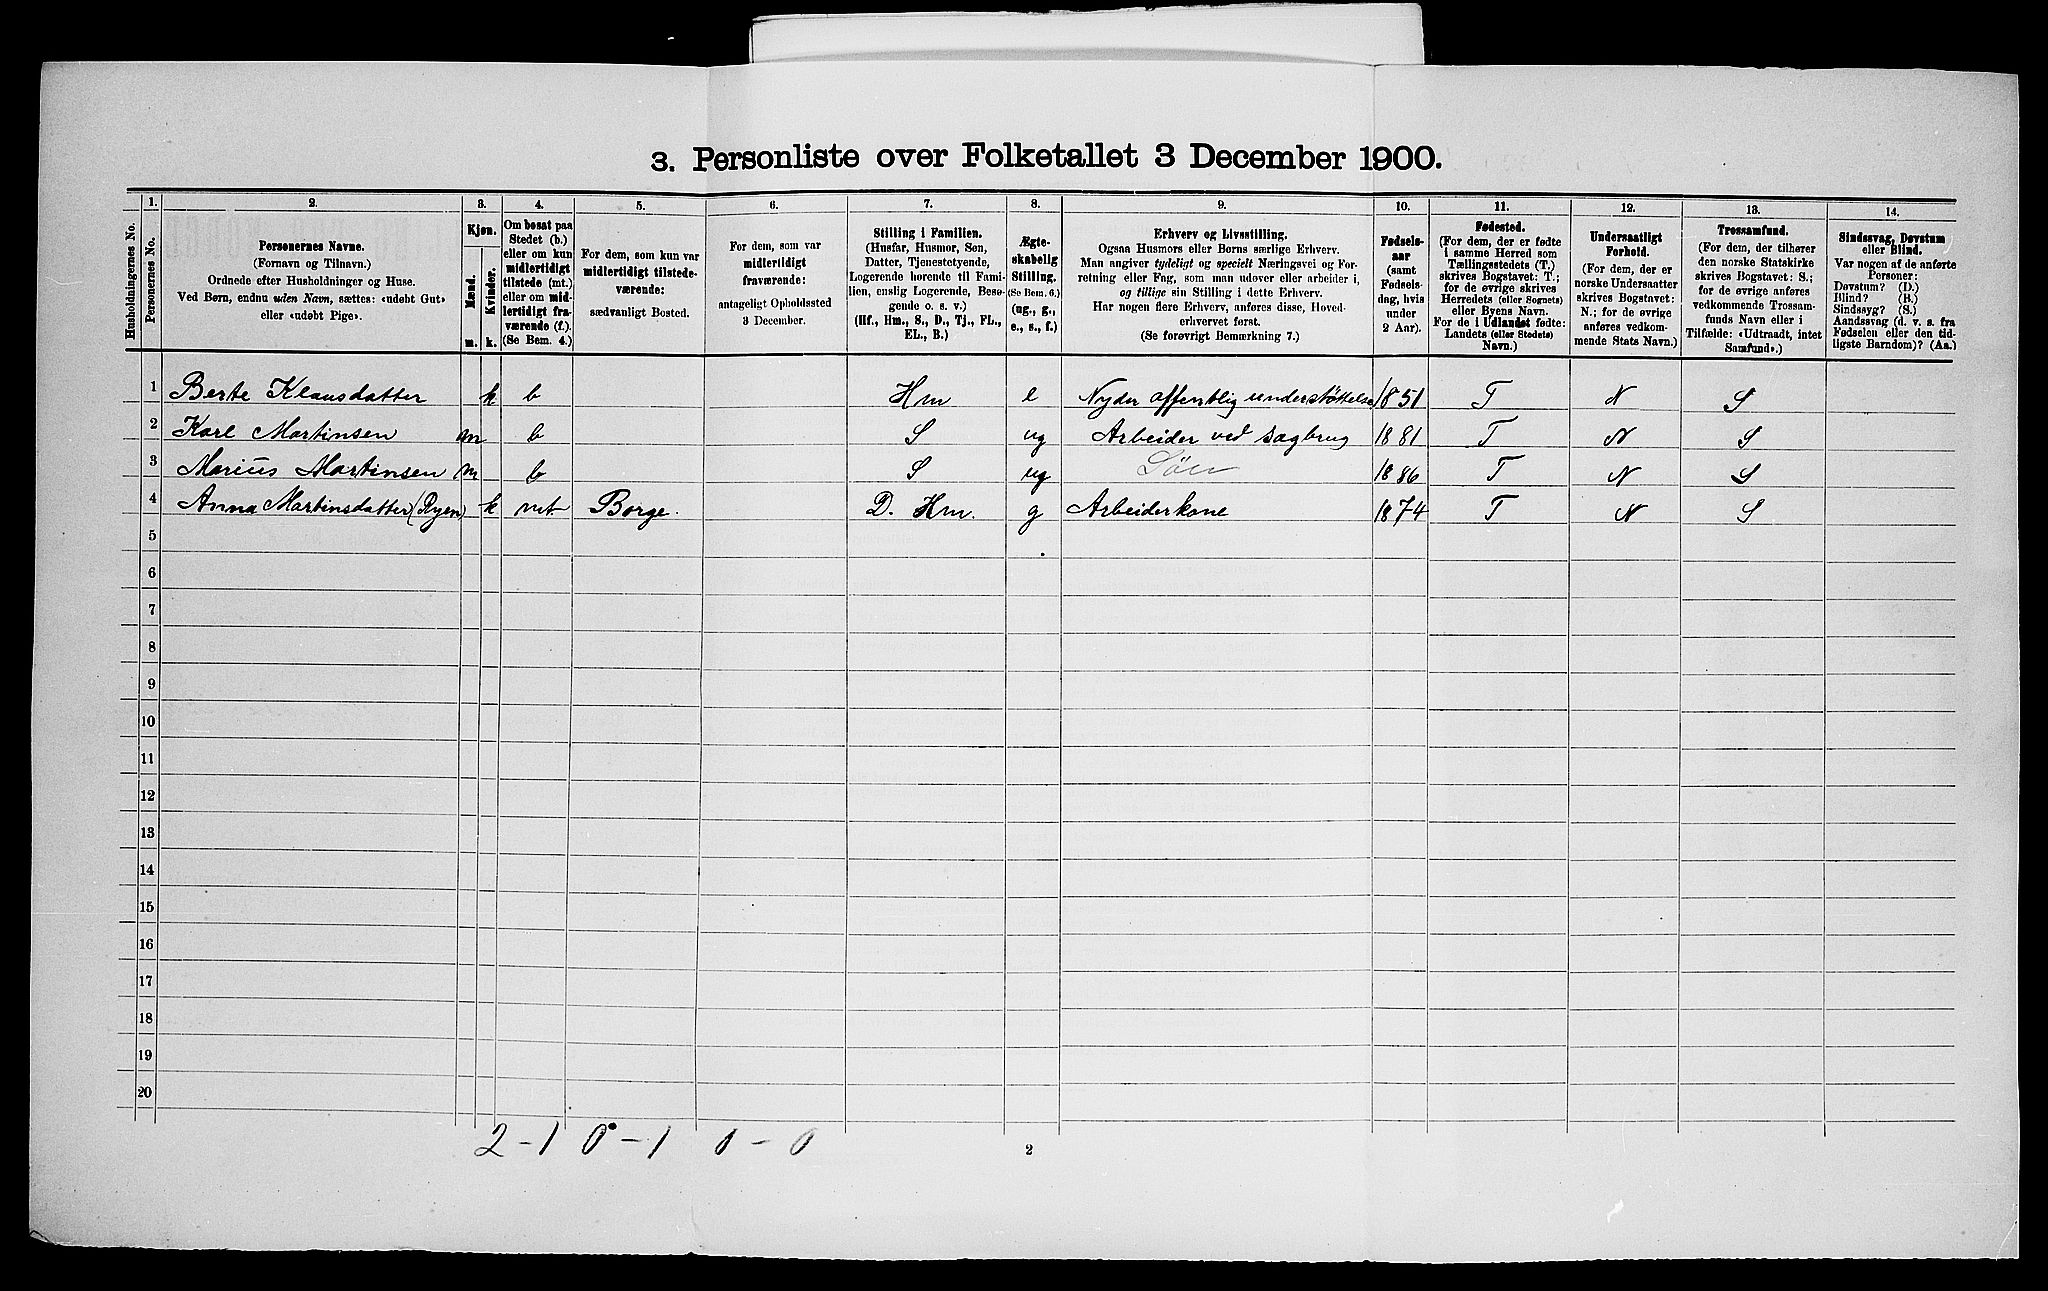 3. Personliste over Folketallet 3 December 1900.
Husholdningernes No.
1.
Personernes No.
2.
Personernes Navne.
(Fornavn og Tilnavn.)
Ordnede efter Husholdninger og Huse.
Ved Børn, endnu uden Navn, sættes: «udøbt Gut»
eller «udøbt Pige».
3.
Kjøn.
Mænd.
m.
Kvinder.
k.
4.
Om bosat paa
Stedet (b.)
eller om kun
midlertidigt
tilstede (mt.)
eller om mid-
lertidigt fra-
værende (f.).
(Se Bem. 4.)
5.
For dem, som kun var
midlertidigt tilstede-
værende:
sædvanligt Bosted.
6.
For dem, som var
midlertidigt
fraværende:
antageligt Opholdssted
3 December.
7.
Stilling i Familien.
(Husfar, Husmor, Søn,
Datter, Tjenestetyende,
Logerende hørende til Fami-
lien, enslig Logerende, Besø-
gende o. s. v.)
(Hf., Hm., S., D., Tj., FL.,
EL., B.)
8.
Ægte-
skabelig
Stilling.
(Se Bem. 6.)
(ug., g.,
e., s., f.)
9.
Erhverv og Livsstilling.
Ogsaa Husmors eller Børns særlige Erhverv.
Man angiver tydeligt og specielt Næringsvei og For-
retning eller Fag, som man udøver eller arbeider i,
og tillige sin Stilling i dette Erhverv.
Har nogen flere Erhverv, anføres disse, Hoved-
erhvervet først.
(Se forøvrigt Bemærkning 7.)
10.
Fødsels-
aar
(samt
Fødsels-
dag, hvis
under
2 Aar).
11.
Fødested.
(For dem, der er fødte
i samme Herred som
Tællingsstedets (T.)
skrives Bogstavet: T.;
for de øvrige skrives
Herredets (eller Sognets)
eller Byens Navn.
For de i Udlandet fødte:
Landets (eller Stedets)
Navn.)
12.
Undersaatligt
Forhold.
(For dem, der er
norske Undersaatter
skrives Bogstavet:
N.; for de øvrige
anføres vedkom-
mende Stats Navn.)
13.
Trossamfund.
(For dem, der tilhører
den norske Statskirke
skrives Bogstavet: S.;
for de øvrige anføres
vedkommende Trossam-
funds Navn eller i
Tilfælde: «Udtraadt, intet
Samfund».)
14.
Sindssvag, Døvstum
eller Blind.
Var nogen af de anførte
Personer:
Døvstum? (D.)
Blind? (B.)
Sindssyg? (S.)
Aandssvag (d. v. s. fra
Fødselen eller den tid-
ligste Barndom)? (Aa.)
1 Berte Klausdatter k b Hm e Nyder offentlig understøttelse 1851 T N S
2 Karl Martinsen m b S ug Arbeider ved sagbrug 1881 T N S
3 Marius Martinsen m b S ug Søn 1886 T N S
4 Anna Martinsdatter (Ryen) k mt Borge. D. Hm. g Arbeiderkone 1874 T N S
5
6
7
8
9
10
11
12
13
14
15
16
17
18
19
20
2 - 1 0 - 1 0 - 0
2